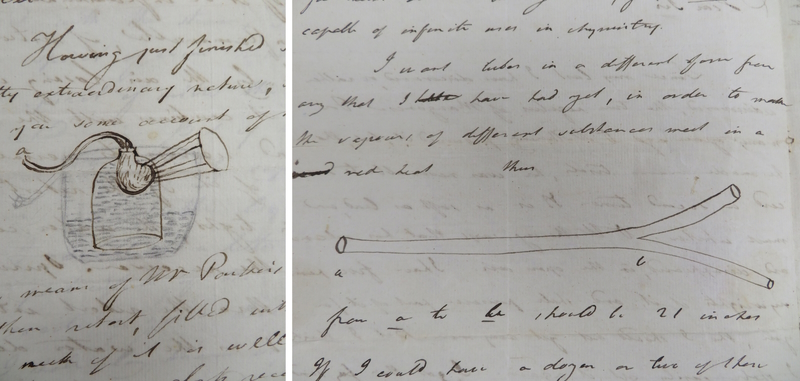 Having just finished
extraordinary nature,
you some account of
a
means of Mr Parker's
then retort, filled
much of it is well
capable of infinite uses in chymistry.
I want tubes in a different form from
any that I have had yet, in order to make
the vapours of different substances meet in a
red heat thus
a
b
from a to b should be 21 inches
If I could have a dozen or two of these